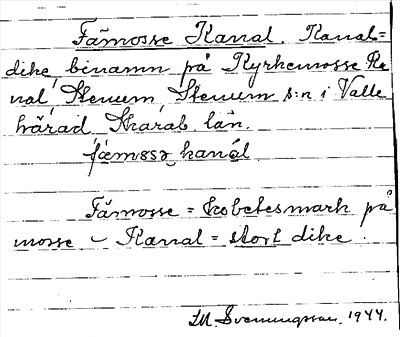 Fämosse Kanal. Kanal=
dike, binamn på Kyrkemosse Ka
nal, Stenum, Stenum s:n i Valle
härad Skarab. län.
fæmɔsə kanál
Fämosse = kobetesmark på
mosse – Kanal = stort dike.
M. Svenungsson. 1944.